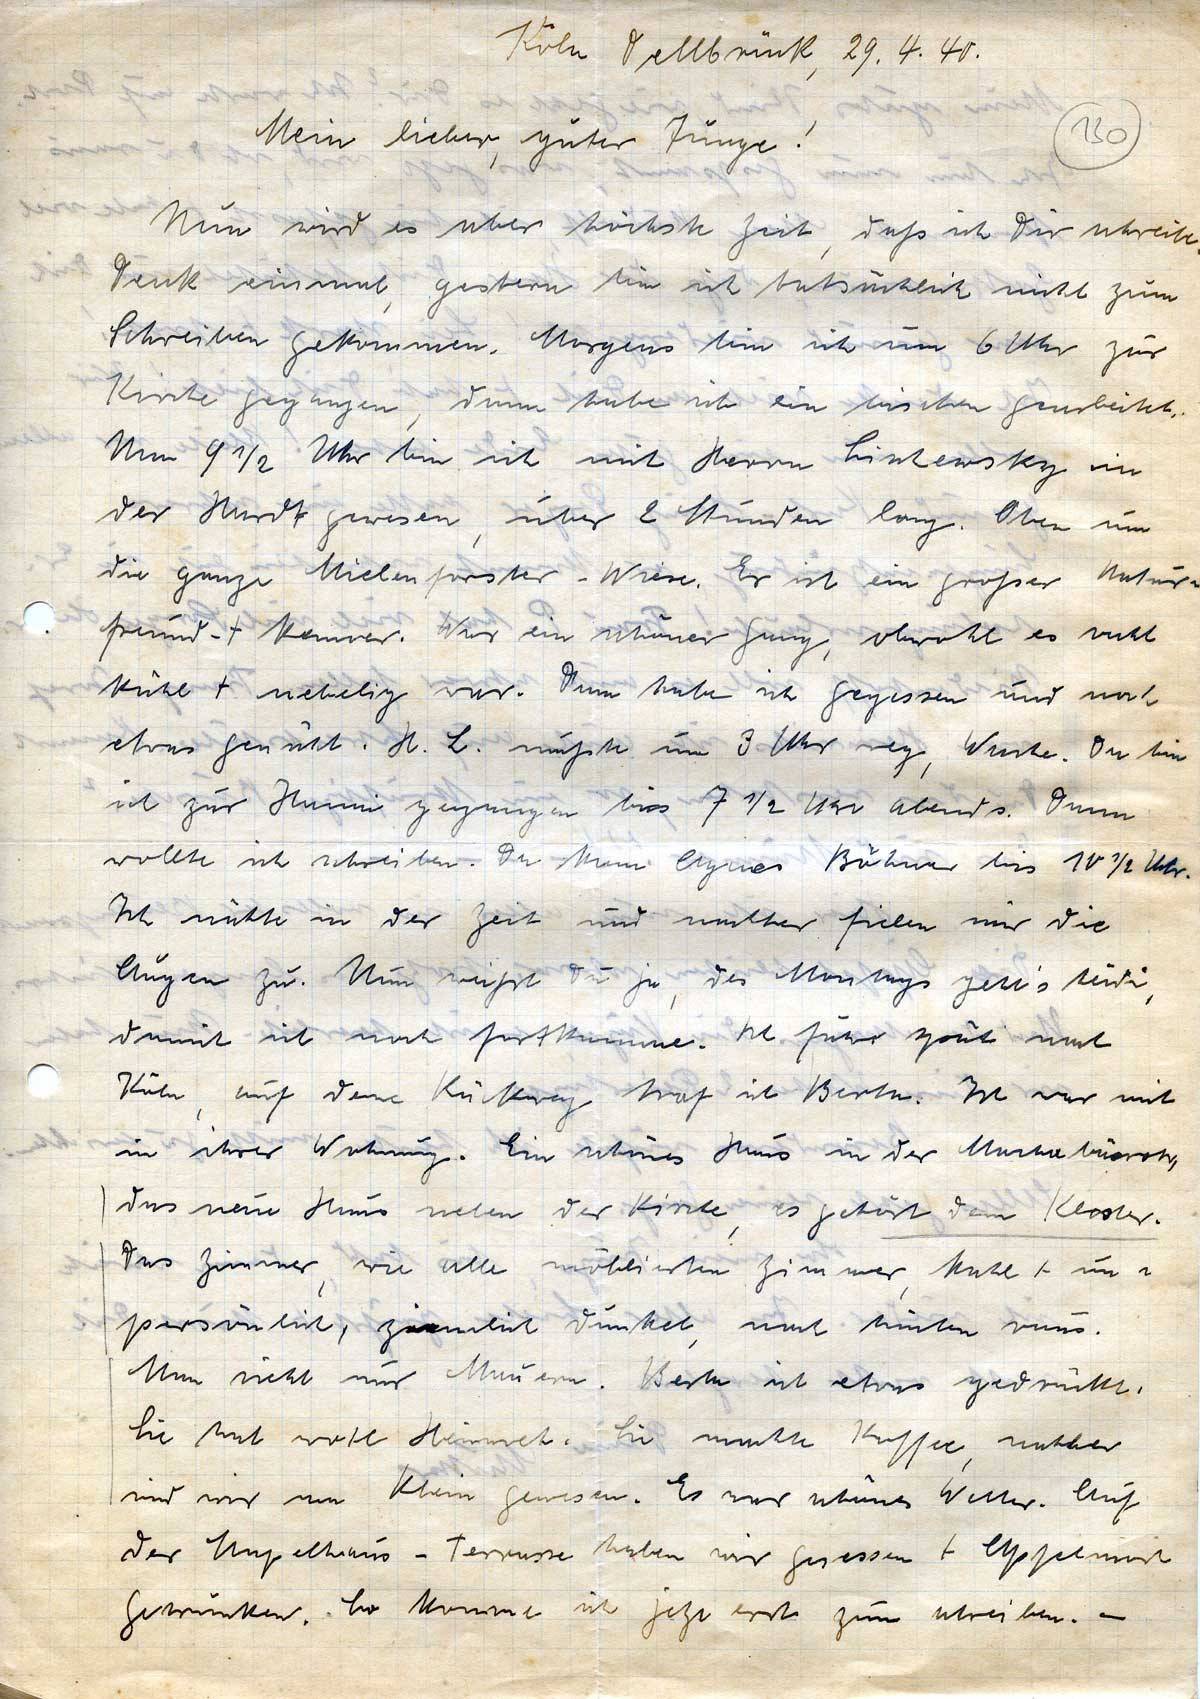 Köln Dellbrück, 29. 4. 40.
130
Mein lieber, guter Junge!
Nun wird es aber höchste Zeit, daß ich Dir schreibe.
Denk einmal, gestern bin ich tatsächlich nicht zum
Schreiben gekommen. Morgens bin ich um 6 Uhr zur
Kirche gegangen, dann habe ich ein bischen gearbeitet.
Um 9 1/2 Uhr bin ich mit Herrn in
der Hardt gewesen, über 2 Stunden lang. Oben um
die ganze Mielenforster-Wiese. Er ist ein großer Natur-
freund- + Kenner. War ein schöner Gang, obwohl es recht
kühl + nebelig war. Dann habe ich gegessen und noch
etwas genäht. H. L. mußte um 3 Uhr weg, Wache. Da bin
ich zur Hanni gegangen bis 7 1/2 Uhr abends. Dann
wollte ich schreiben. Da kam Agnes Böhmer bis 10 1/2 Uhr.
Ich nähte in der Zeit und nachher fielen mir die
Augen zu. Nun weißt Du ja, des Montags geht's
damit ich noch fortkomme. Ich fuhr nach
Köln, auf dem Rückweg traf ich Berta. Ich war mit
in ihrer Wohnung. Ein schönes Haus in der
das neue Haus neben der Kirche, es gehört dem Kloster.
Das Zimmer, wie alle möblierten Zimmer, kahl + un-
persönlich, ziemlich dunkel, nach hinten raus.
Man sieht nur Mauern. Berta ist etwas gedrückt.
Sie hat wohl Heimweh. Sie machte Kaffee, nachher
sind wir am Rhein gewesen. Es war schönes Wetter. Auf
der Stapelhaus-Terrasse haben wir gesessen + Apfelmost
getrunken. So komme ich jetzt erst zum schreiben. –